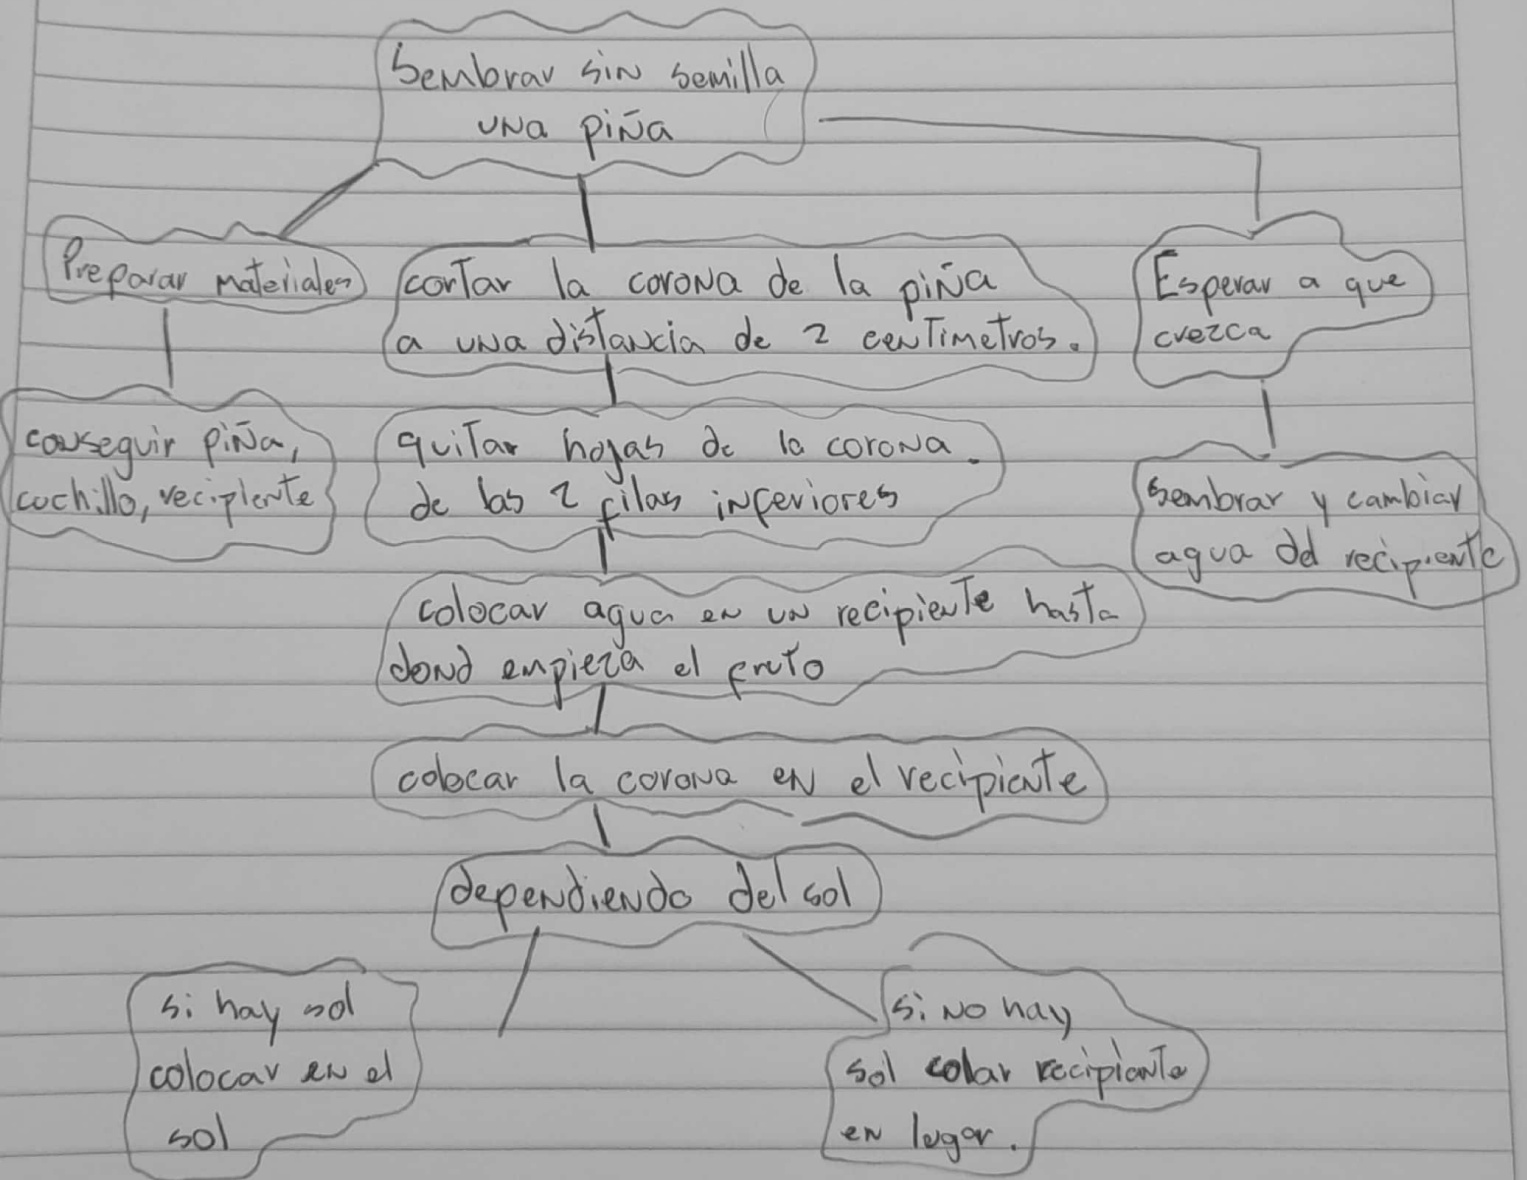 Sembrar sin semilla
una piña
Preparar materiales
conseguir piña,
cuchillo, recipiente
cortar la corona de la piña
a una distancia de 2 centimetros.
quitar hojas de la corona.
de las 2 filas inferiores
colocar agua en un recipiente hasta
dond empieza el fruto
colocar la corona en el recipiente
dependiendo del sol
si hay sol
colocar en el
sol
si no hay
sol colar recipiente
en lugar.
Esperar a que
crezca
sembrar y cambiar
agua del recipiente